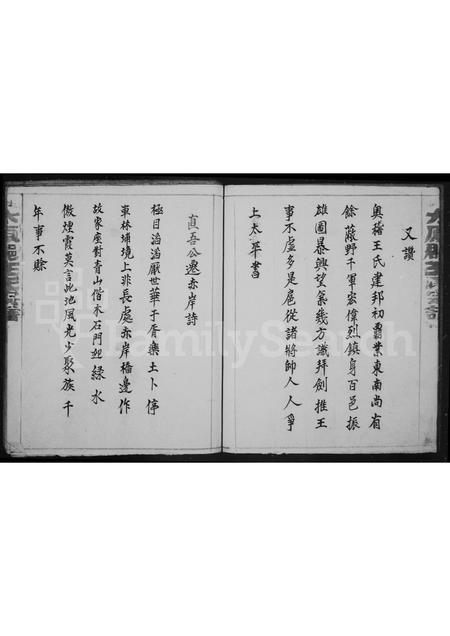 又讚
奧稽王氏建邦初霸業東南尚有
餘蔽野千軍宏偉烈鎮身百邑振
雄圖暴興望氣幾方識拜劍推王
事不虛多是扈從諸將帥人人爭
上太平書
直吾公遷赤岸詩
極目滔滔厭世華于胥樂土卜停
車林埔境上非長處赤岸橋邊作
故家座對青山偕木石門迎綠水
傲煙霞莫言此地風光少聚族千
年事不賒
FamilySearch